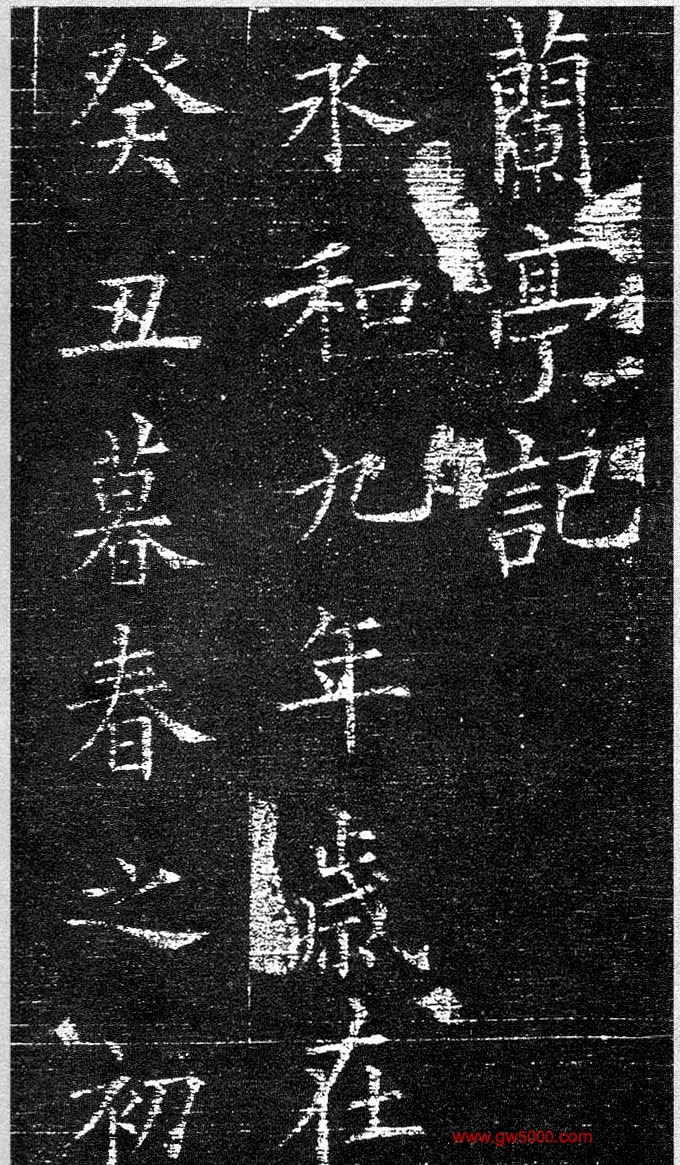 蘭亭記
永和九年歳在
癸丑暮春之初
www.gw5000.com